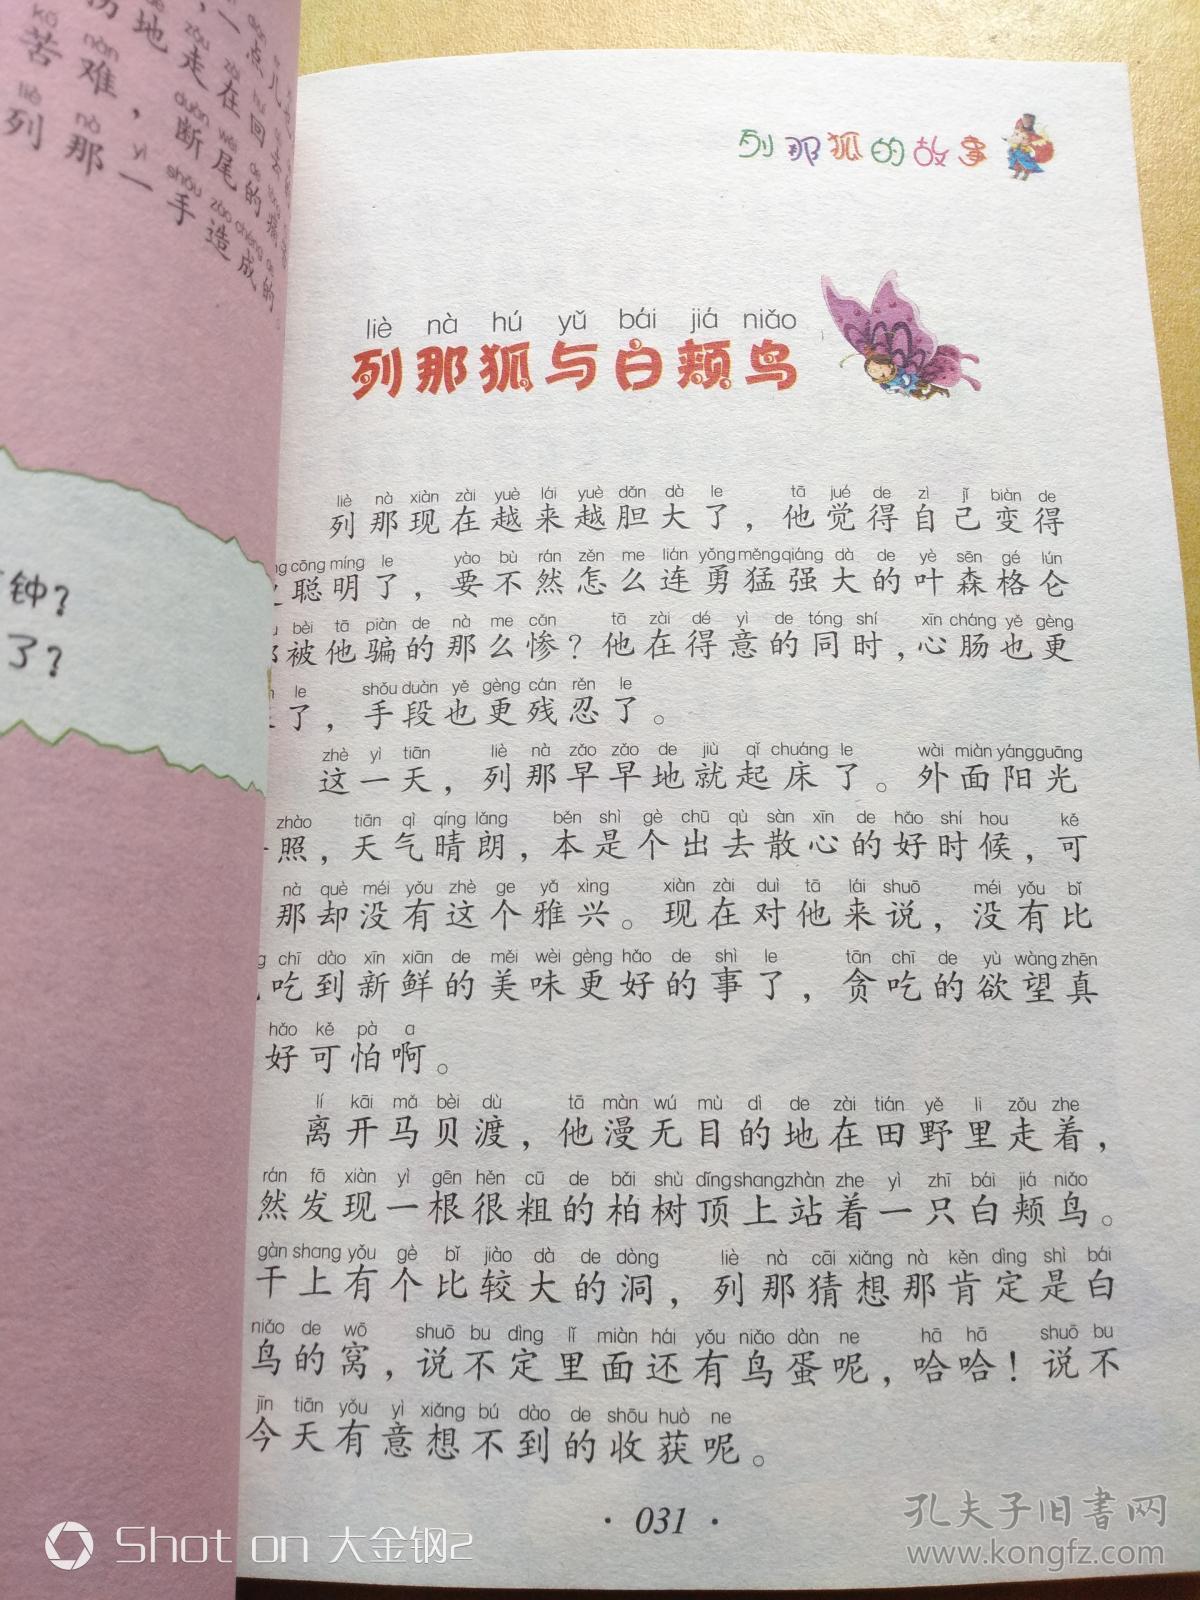 一点儿
地走在回去
苦难，断尾的痛
列那一手造成的。
钟？
了？
列那狐的故事
liè nà hú yǔ bái jiá niǎo
列那狐与白颊鸟
liè nà xiàn zài yuè lái yuè dǎn dà le tā jué de zì jǐ biàn de
列那现在越来越胆大了，他觉得自己变得
cōng míng le yào bù rán zěn me lián yǒng měng qiáng dà de yè sēn gé lún
聪明了，要不然怎么连勇猛强大的叶森格仑
bèi tā piàn de nà me cǎn tā zài dé yì de tóng shí xīn cháng yě gèng
被他骗的那么惨？他在得意的同时，心肠也更
le shǒu duàn yě gèng cán rěn le
了，手段也更残忍了。
zhè yì tiān liè nà zǎo zǎo de jiù qǐ chuáng le wài miàn yáng guāng
这一天，列那早早地就起床了。外面阳光
zhào tiān qì qíng lǎng běn shì gè chū qù sàn xīn de hǎo shí hou kě
照，天气晴朗，本是个出去散心的好时候，可
nà què méi yǒu zhè ge yǎ xìng xiàn zài duì tā lái shuō méi yǒu bǐ
那却没有这个雅兴。现在对他来说，没有比
chī dào xīn xiān de měi wèi gèng hǎo de shì le tān chī de yù wàng zhēn
吃到新鲜的美味更好的事了，贪吃的欲望真
hǎo kě pà a
好可怕啊。
lí kāi mǎ bèi dù tā màn wú mù dì de zài tián yě li zǒu zhe
离开马贝渡，他漫无目的地在田野里走着，
rán fā xiàn yì gēn hěn cū de bǎi shù dǐng shang zhàn zhe yì zhī bái jiá niǎo
然发现一根很粗的柏树顶上站着一只白颊鸟。
gàn shang yǒu gè bǐ jiào dà de dòng liè nà cāi xiǎng nà kěn dìng shì bái
干上有个比较大的洞，列那猜想那肯定是白
niǎo de wō shuō bu dìng lǐ miàn hái yǒu niǎo dàn ne hā hā shuō bu
鸟的窝，说不定里面还有鸟蛋呢，哈哈！说不
jīn tiān yǒu yì xiǎng bú dào de shōu huò ne
今天有意想不到的收获呢。
· 031 ·
Shot on 大金钢2
孔夫子旧书网
www.kongfz.com